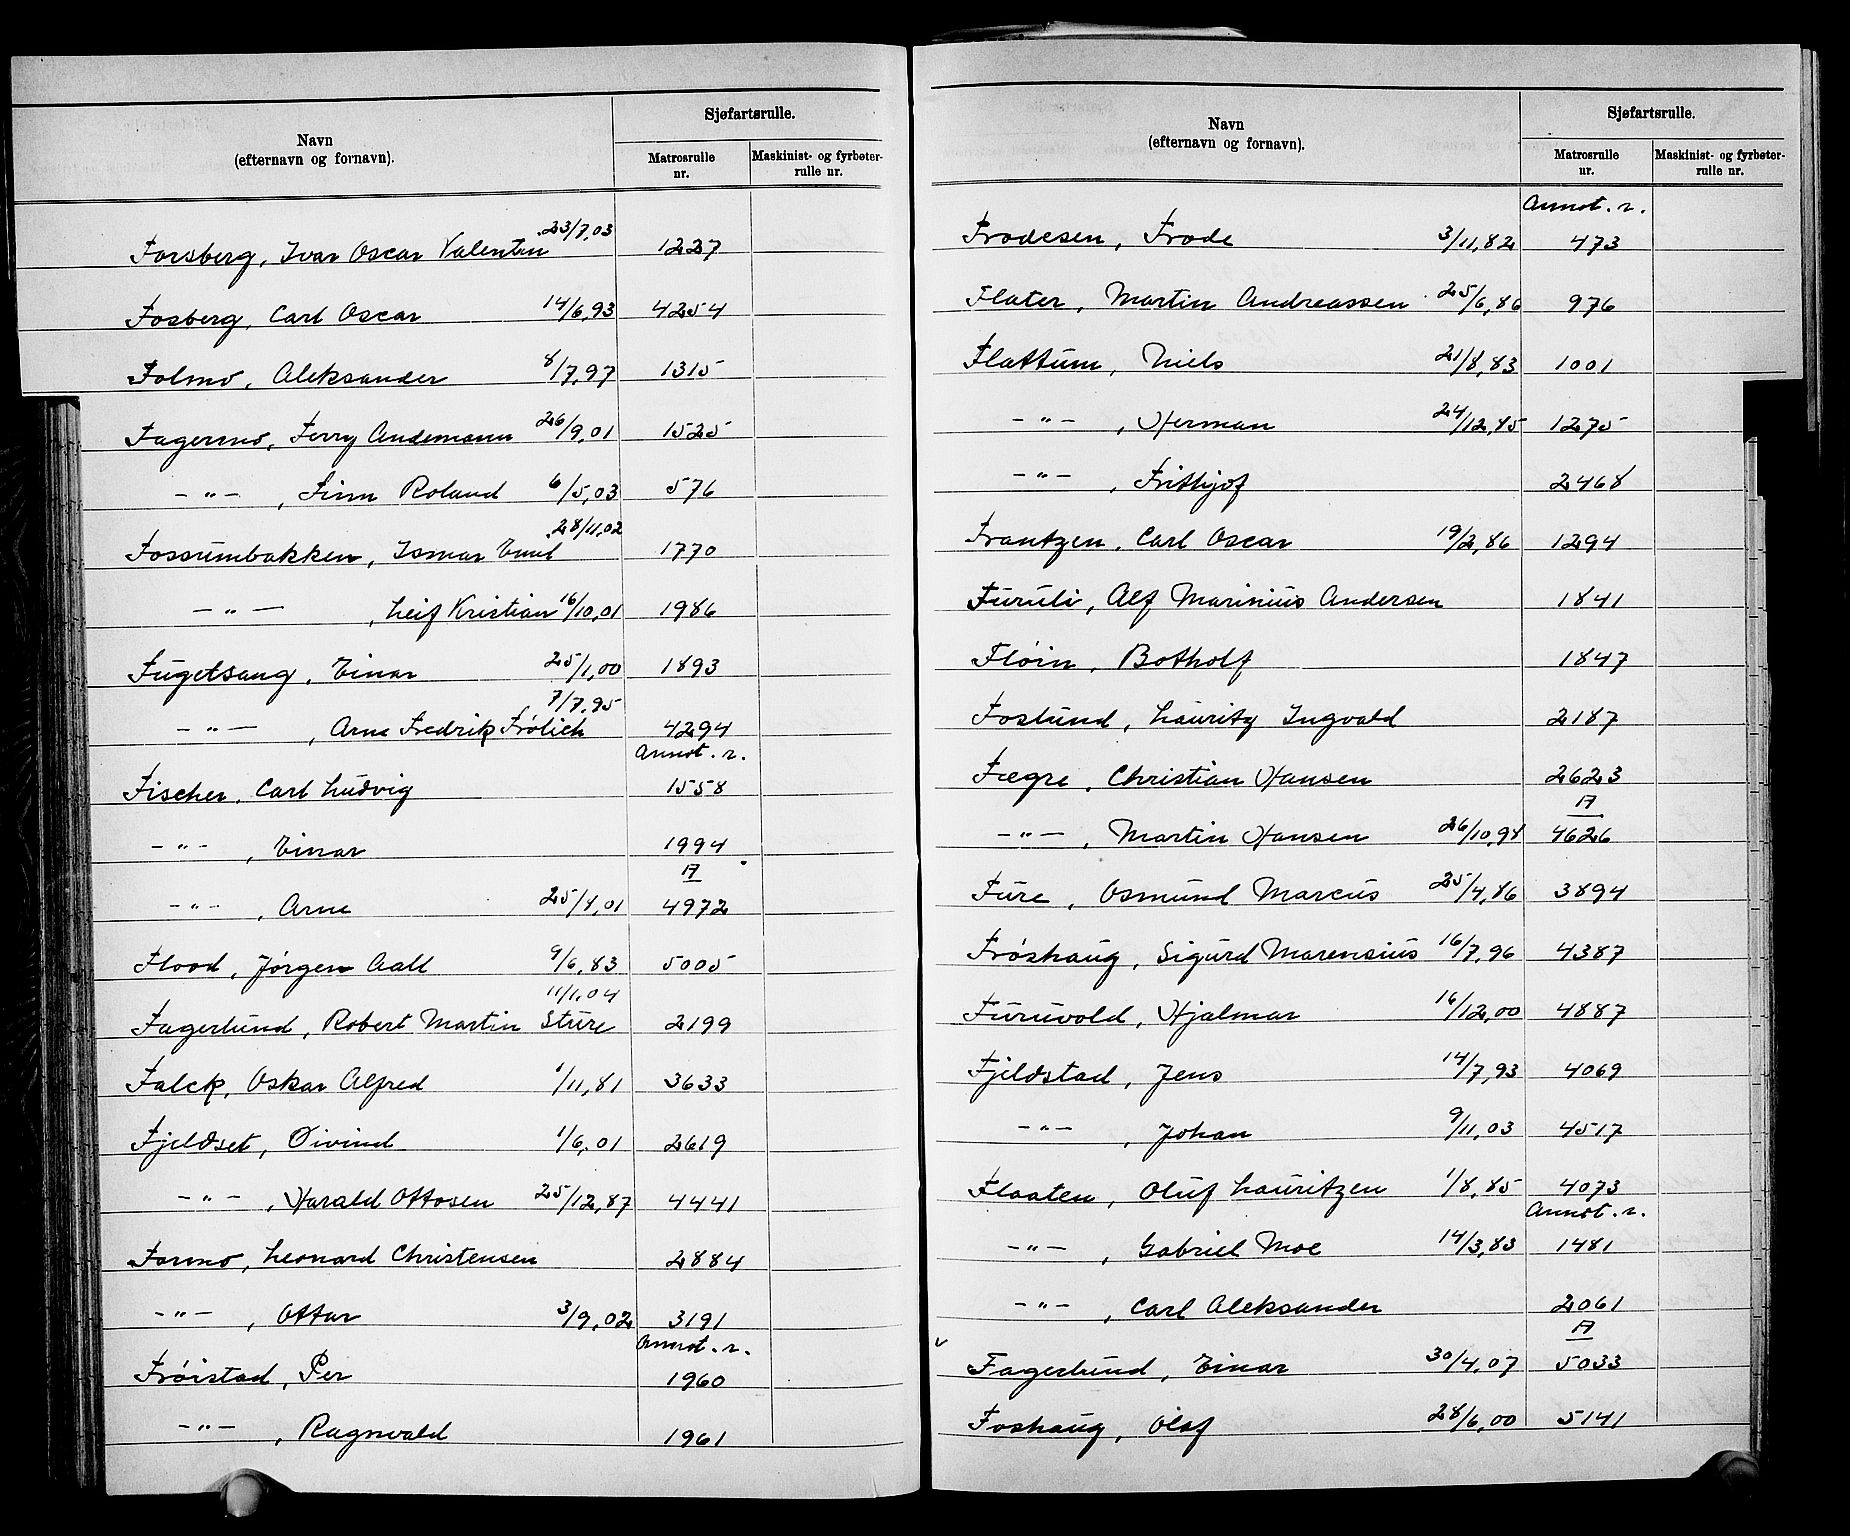 Navn
(efternavn og fornavn).
Sjøfartsrulle.
Matrosrulle
nr.
Maskinist- og fyrbøter-
rulle nr.
Forsberg, Ivar Oscar Valentin 23/7,03 1227
Fosberg, Carl Oscar 14/6,93 4254
Folmo, Aleksander 8/7,97 1315
Fagermo, Ferry Andemann 26/9,01 1525
—"— , Finn Roland 6/5,03 576
Fossumbakken, Ismar Emil 28/11,02 1770
—"— , Leif Kristian 16/10,01 1986
Fugelsang, Einar 25/1,00 1893
—"— , Arne Fredrik Frölich 7/7,95 4294
Annot. r.
Fischer, Carl Ludvig 1558
—"— , Einar 1994
A
—"— , Arne 25/8,01 4972
Flood, Jørgen Aall 9/6,83 5005
Fagerlund, Robert Martin Sture 11/1,04 2199
Falck, Oskar Alfred 1/11,81 3633
Fjeldset, Oivind 1/6,01 2619
—"— , Harald Ottosen 25/12,87 4441
Formo, Leonard Christensen 2884
—"— , Ottar 3/9,02 3191
Annot. r.
Fröistad, Per 1960
—"— , Ragnvald 1961
Navn
(efternavn og fornavn).
Sjøfartsrulle.
Matrosrulle
nr.
Maskinist- og fyrbøter-
rulle nr.
Annot. r.
Frodesen, Frode 3/11,82 473
Flater, Martin Andreassen 25/6,86 976
Flattum, Niels 21/8,83 1001
—"— , Herman 24/12,85 1275
—"— , Frithjof 2468
Frantzen, Carl Oscar 19/2,86 1294
Furuli, Alf Marinius Andersen 1841
Flöin, Botholf 1847
Foslund, Lauritz Ingvald 2187
Fægre, Christian Hansen 2623
A
—"— , Martin Hansen 26/10,98 4626
Fure, Osmund Marcus 25/4,86 3894
Fröshaug, Sigurd Marensius 16/7,96 4387
Furuvold, Hjalmar 16/12,00 4887
Fjeldstad, Jens 14/7,93 4069
—"— , Johan 9/11,03 4517
Flaaten, Oluf Lauritzen 1/8,85 4073
Annot. r.
—"— , Gabriel Moe 14/3,83 1481
—"— , Carl Aleksander 2061
A
Fagerlund, Einar 30/4,07 5033
Foshaug, Olaf 28/6,00 5141